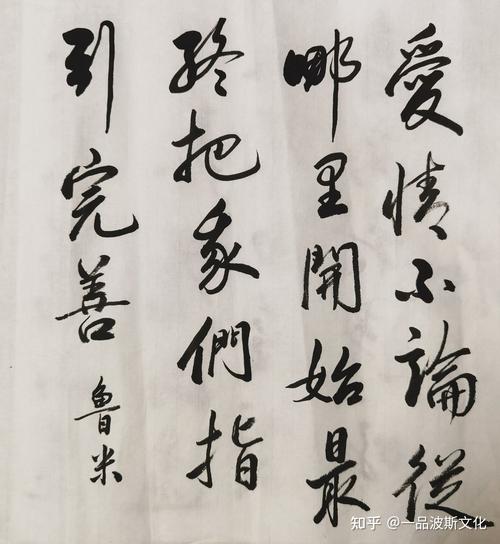 愛情不論從
哪里開始最
終把我們指
引完善
魯米
知乎 @一品波斯文化